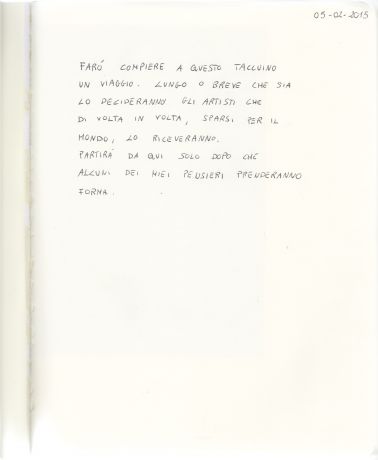 05-02-2015
FARÓ COMPIERE A QUESTO TACCUINO
UN VIAGGIO. LUNGO O BREVE CHE SIA
LO DECIDERANNO GLI ARTISTI CHE
DI VOLTA IN VOLTA, SPARSI PER IL
MONDO, LO RICEVERANNO.
PARTIRÁ DA QUI SOLO DOPO CHE
ALCUNI DEI MIEI PENSIERI PRENDERANNO
FORMA.